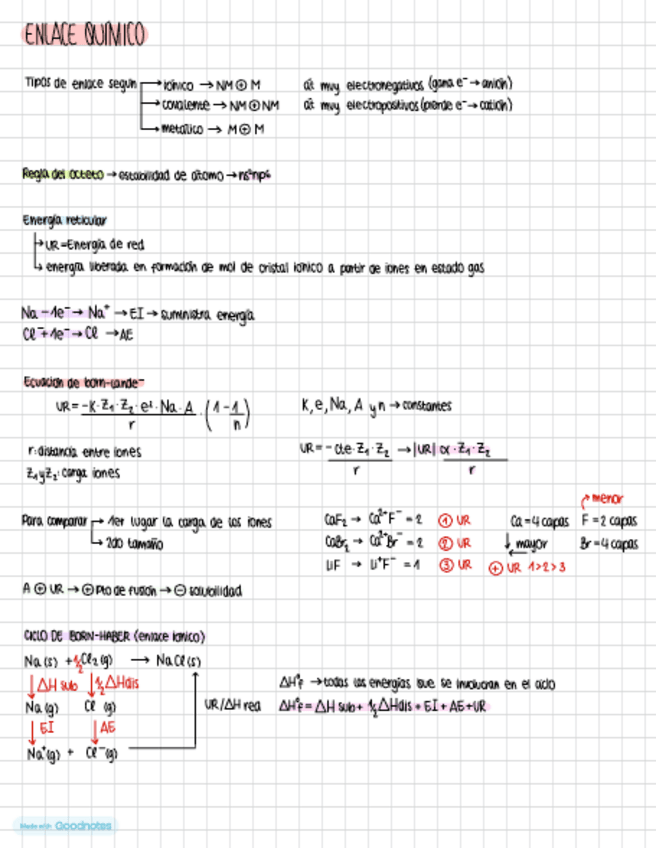 ENLACE QUÍMICO
Tipos de enlace segun → ionico → NM ⊕ M
→ covalente → NM ⊕ NM
→ metalico → M ⊕ M
át muy electronegativos (gana e⁻ → anión)
át muy electropositivos (pierde e⁻ → catión)
Regla del octeto → estabilidad de átomo → ns²np⁶
Energía reticular
→ UR = Energía de red
→ energía liberada en formación de mol de cristal ionico a partir de iones en estado gas
Na − 1e⁻ → Na⁺ → EI → suministra energía
Cl⁻ + 1e⁻ → Cl → AE
Ecuación de born-lande
UR = −K·Z₁·Z₂·e²·Na·A / r · (1 − 1/n)
K, e, Na, A y n → constantes
r: distancia entre iones
Z₁ y Z₂: carga iones
UR = −cte·Z₁·Z₂ / r → |UR| α ·Z₁·Z₂ / r
Para comparar → 1er lugar la carga de los iones
→ 2do tamaño
CaF₂ → Ca²⁺F⁻ = 2 ① UR
CaBr₂ → Ca²⁺Br⁻ = 2 ② UR
LiF → Li⁺F⁻ = 1 ③ UR
menor
Ca = 4 capas F = 2 capas
↓ mayor Br = 4 capas
⊕ UR 1>2>3
A ⊕ UR → ⊕ Pto de fusión → ⊖ solubilidad
CICLO DE BORN-HABER (enlace ionico)
Na (s) + ½ Cl₂ (g) → NaCl (s)
↓ ΔH sub ↓ ½ ΔHdis
Na (g) Cl (g)
↓ EI ↓ AE
Na⁺(g) + Cl⁻ (g)
UR/ΔH red
ΔH°f → todas las energías que se involucran en el ciclo
ΔH°f = ΔH sub + ½ ΔHdis + EI + AE + UR
Made with Goodnotes